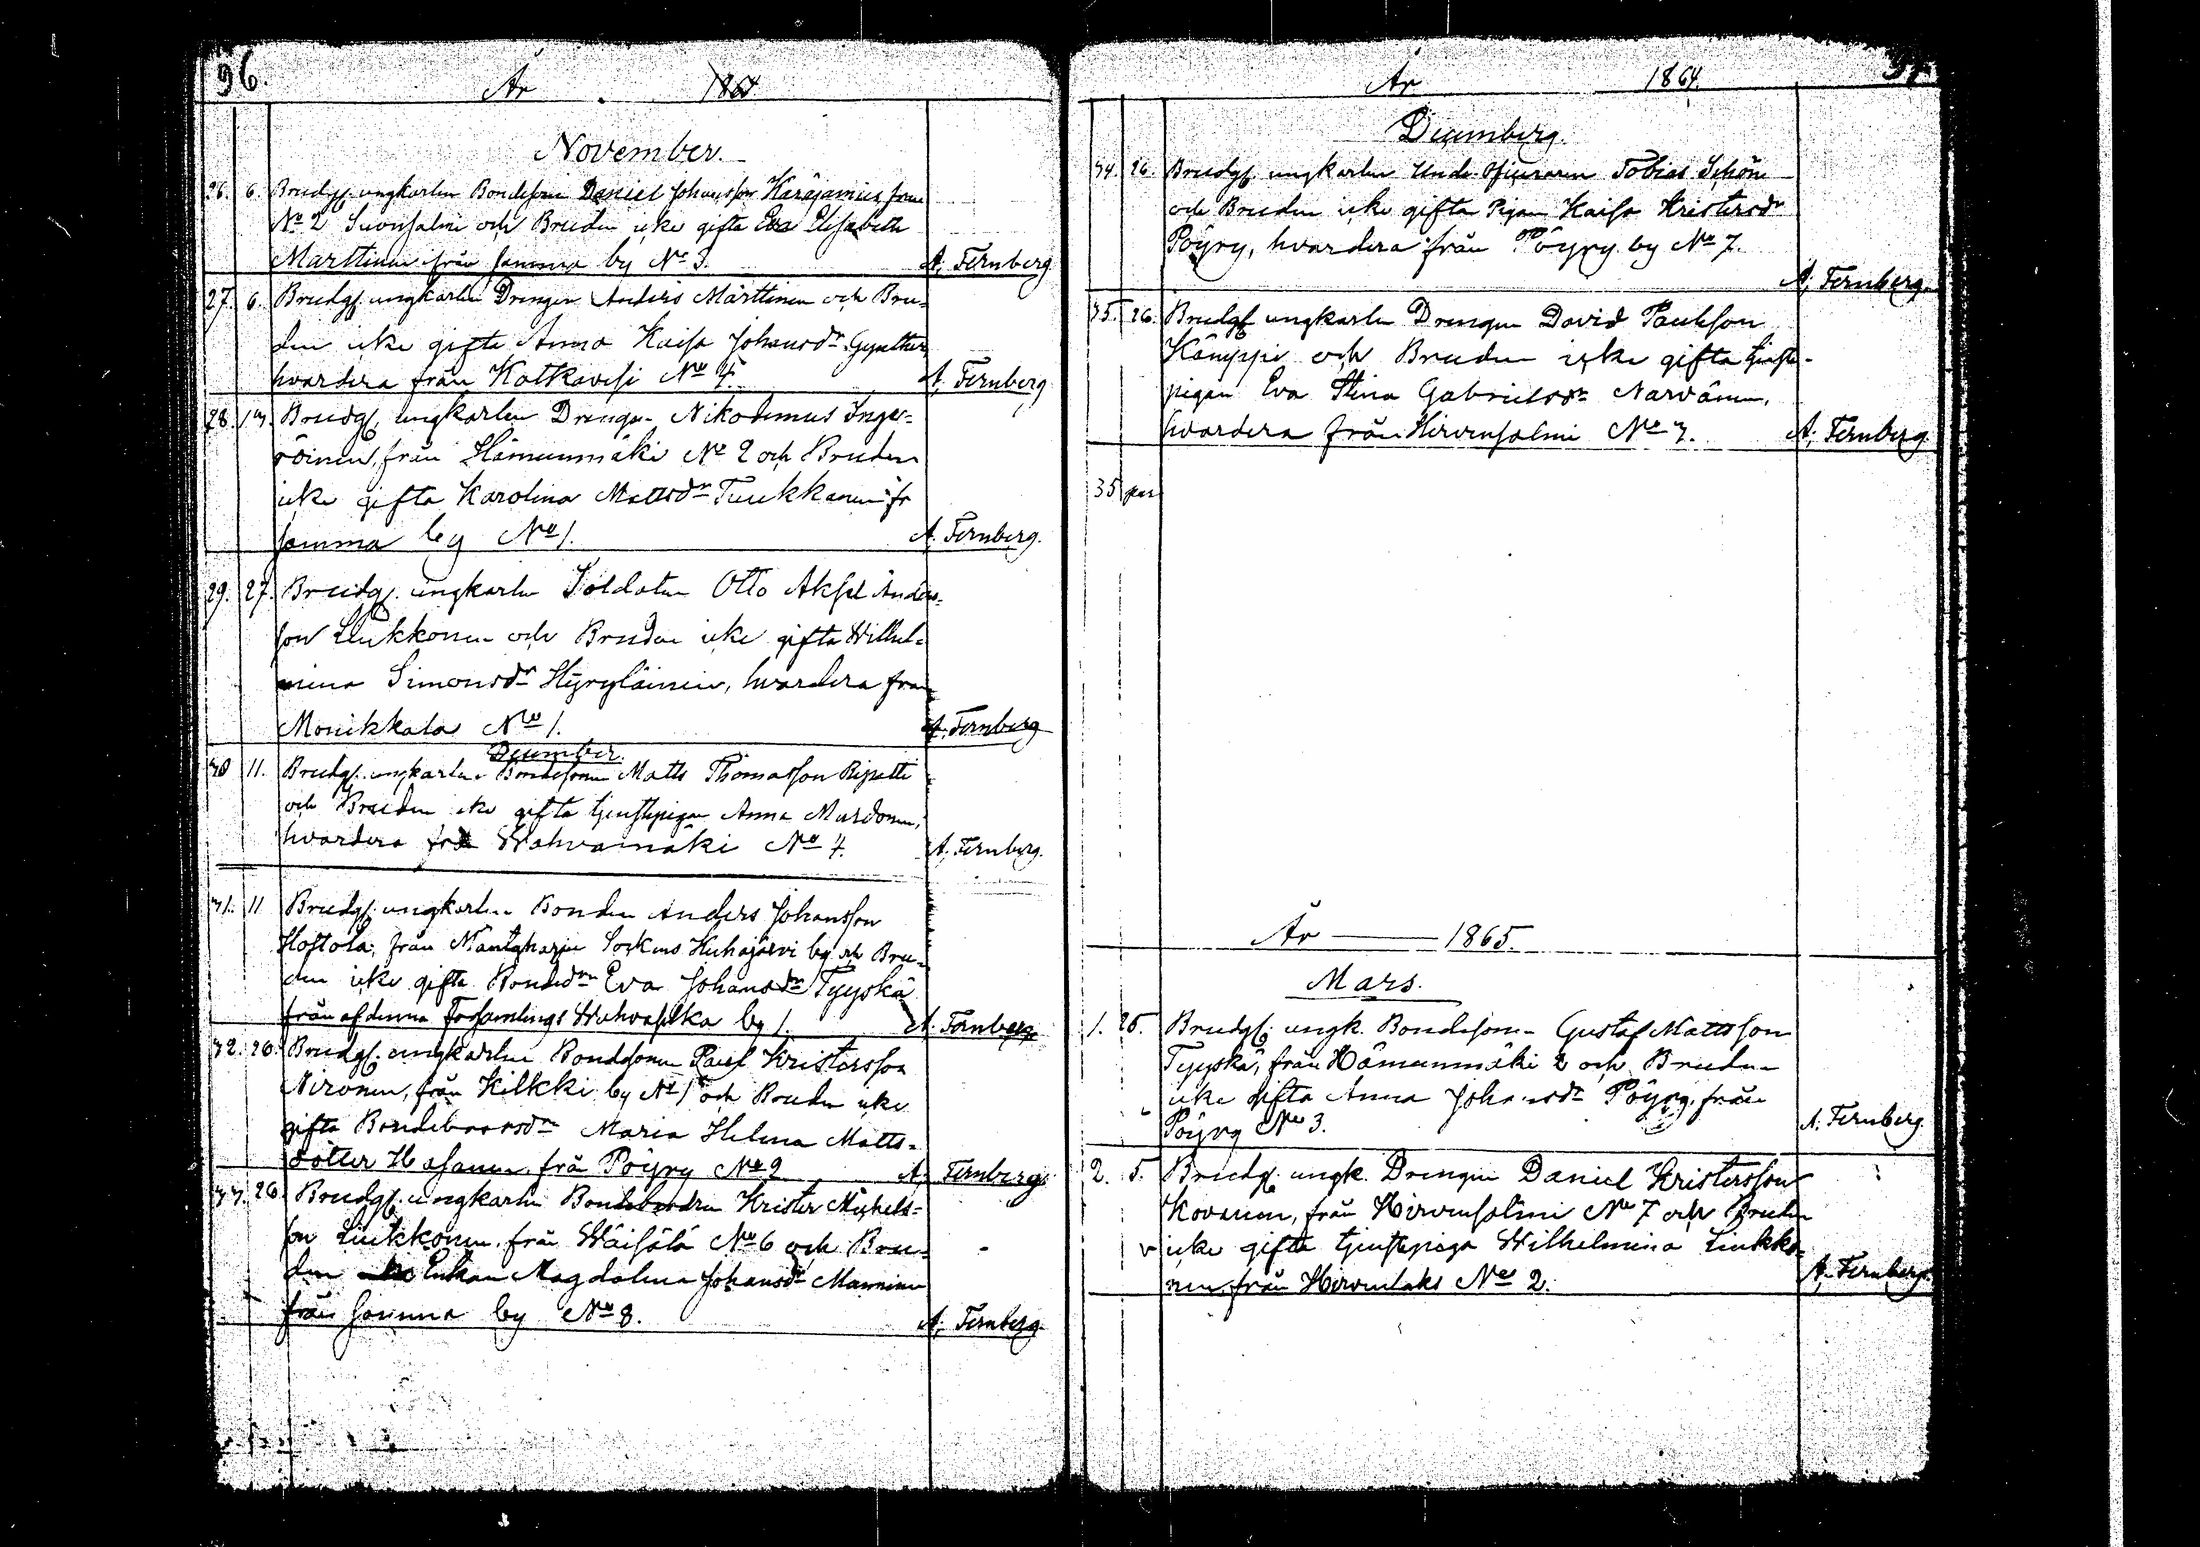 96.
År 1864
November.
26. 6. Brudg. ungkarlen Bondesonen Daniel Johansson Karäjamies från
No 2 Suonsalmi och Bruden icke gifta Eva Elisabeth
Marttinen från Jomma by No 3. A. Fernberg
27. 6. Brudg. ungkarlen Drengen Anders Marttinen och Bru-
den icke gifta Anna Kaisa Johansdr Gynther
hvardera från Kotkavesi No 4. A. Fernberg
28. 13. Brudg. ungkarlen Drengen Nikodemus Inge-
röinen, från Hämeenmäki No 2 och Bruden
icke gifta Karolina Mattsdr Tuukkanen fr
Jomma by No 1. A. Fernberg.
29. 27. Brudg. ungkarlen Soldaten Otto Aksel Anders-
son Liukkonen och Bruden icke gifta Wilhel-
mina Simonsdr Hyryläinen, hvardera från
Monikkala No 1. A. Fernberg
December.
30 11. Brudg. ungkarlen Bondesonen Matts Thomasson Ripatti
och Bruden icke gifta tjenstepigan Anna Mursonen,
hvardera från Wahvamäki No 4. A. Fernberg.
31. 11 Brudg. ungkarlen Bonden Anders Johansson
Hostola, från Mäntyharju Sockens Kuhajärvi by och Bru-
den icke gifta Bondedrn Eva Johansdr Tyyskä
från af denna Församlings Wahvaselka by 1. A. Fernberg
32. 26. Brudg. ungkarlen Bondsonen Paul Kristersson
Nironen, från Kilkki by No 1 och Bruden icke
gifta Maria Helena Matts-
dotter Hasanen från Pöyry No 2 A. Fernberg.
33. 26. Brudg. ungkarlen Krister Michels-
son Liukkonen från Wäisälä No 6 och Bru-
den Enkan Magdalena Johansdr Manninen
från Jomma by No 8. A. Fernberg.
97
År 1864.
Decemberg.
34. 26. Brudg. ungkarlen Under Officeraren Tobias Schön
och Bruden icke gifta Pigan Kaisa Kristersdr
Pöyry, hvardera från Pöyry by No 7.
A. Fernberg.
35. 26. Brudg ungkarlen Drengen David Paulsson
Kämppi och Bruden icke gifta tjenste-
pigan Eva Stina Gabrielsdr Narvänen,
hvardera från Hirvensalmi No 3. A. Fernberg.
35 par
År 1865.
Mars.
1. 25. Brudg. ungk. Bondesonen Gustaf Mattsson
Tyyskä, från Hämeenmäki 2 och Bruden
icke gifta Anna Johansdr Pöyry, från
Pöyry No 3. A. Fernberg.
2. 5. Brudg. ungk. Drengen Daniel Kristersson
Kovanen, från Hirvensalmi No 7 och Bruden
icke gifta tjenstepiga Wilhelmina Liukko-
nen från Hirvenlaks No 2. A. Fernberg.